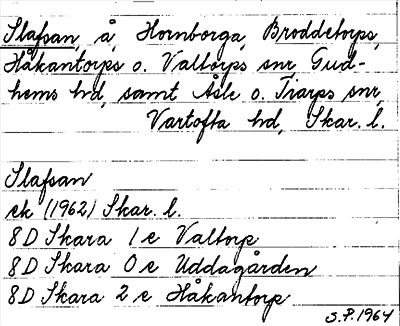 Slafsan, å, Hornborga, Broddetorps,
Håkantorps o. Valtorps snr Gud-
hems hd, samt Åsle o. Tiarps snr,
Vartofta hd, Skar. l.
Slafsan
ek (1962) Skar. l.
8D Skara 1e Valtorp
8D Skara 0e Uddagården
8D Skara 2e Håkantorp
S.P. 1964